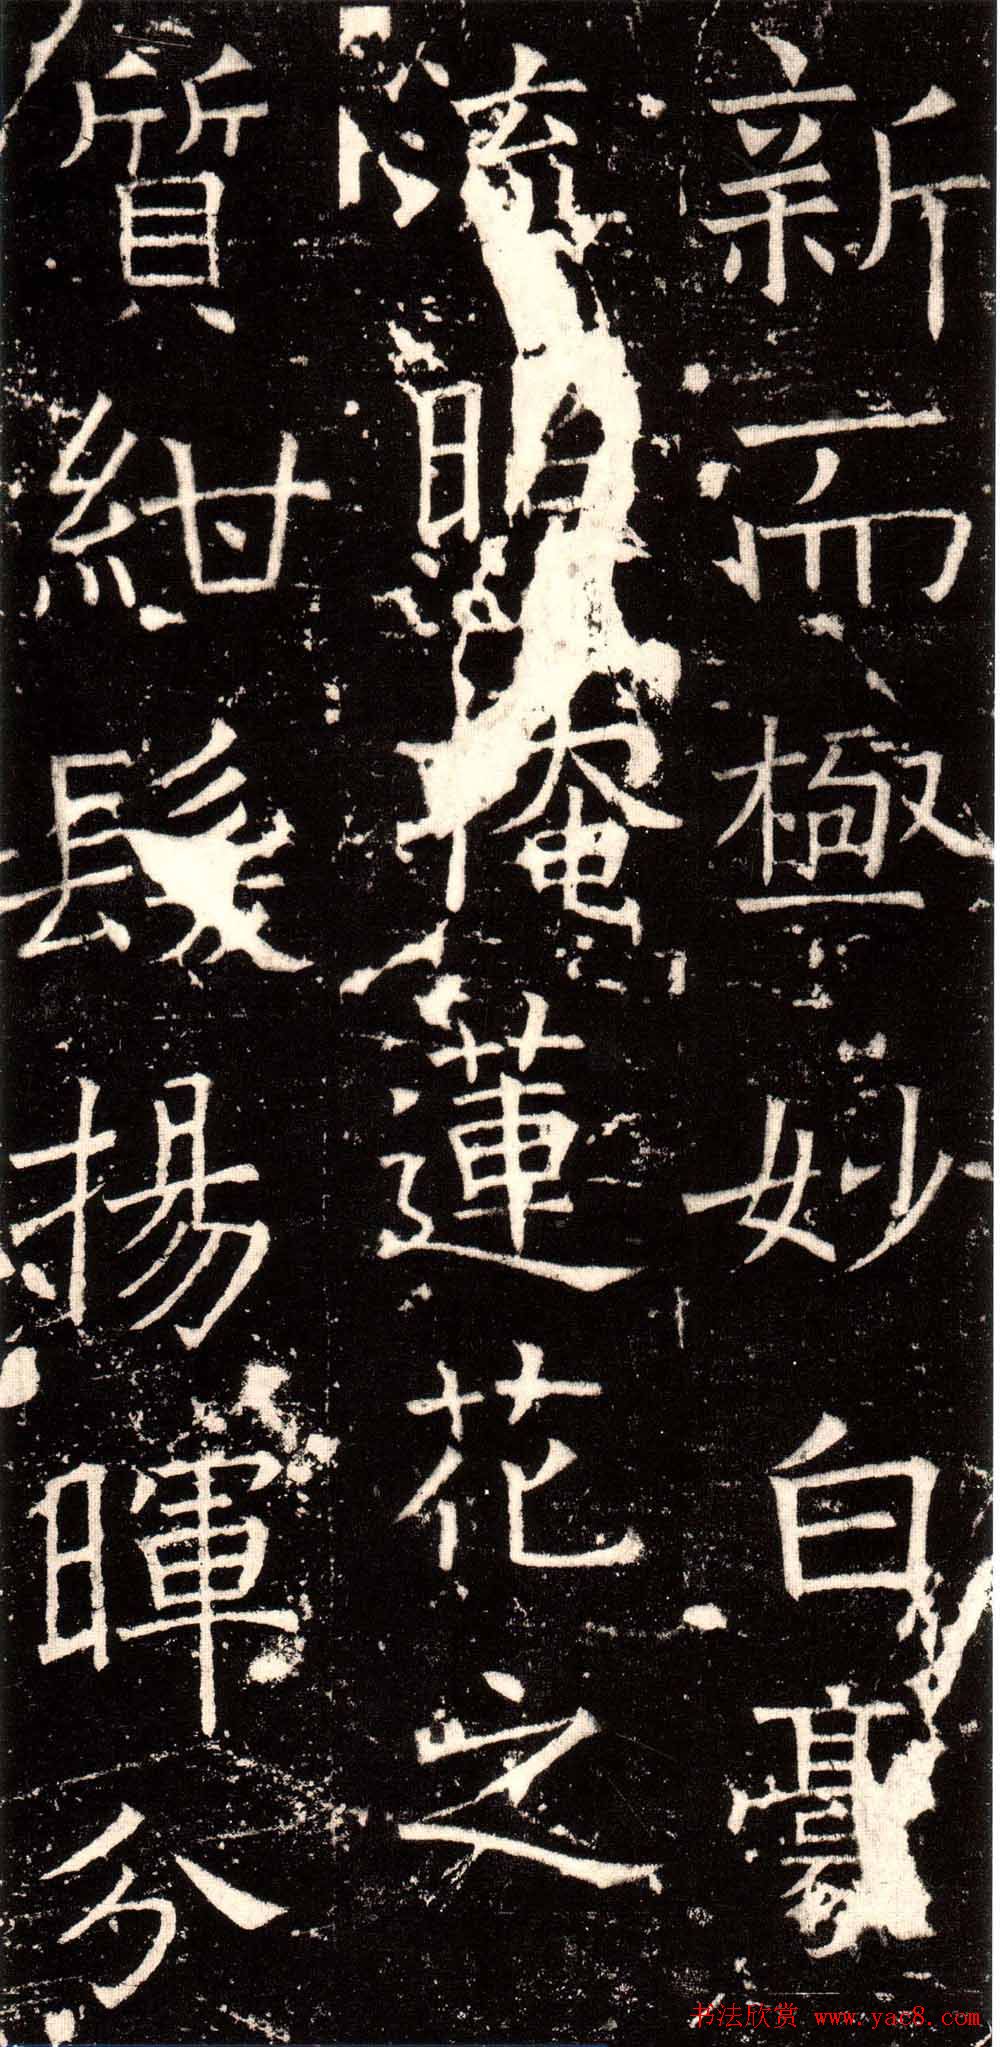 新而極妙白毫
流照掩蓮花之
質紺髮揚暉分
书法欣赏 www.yac8.com